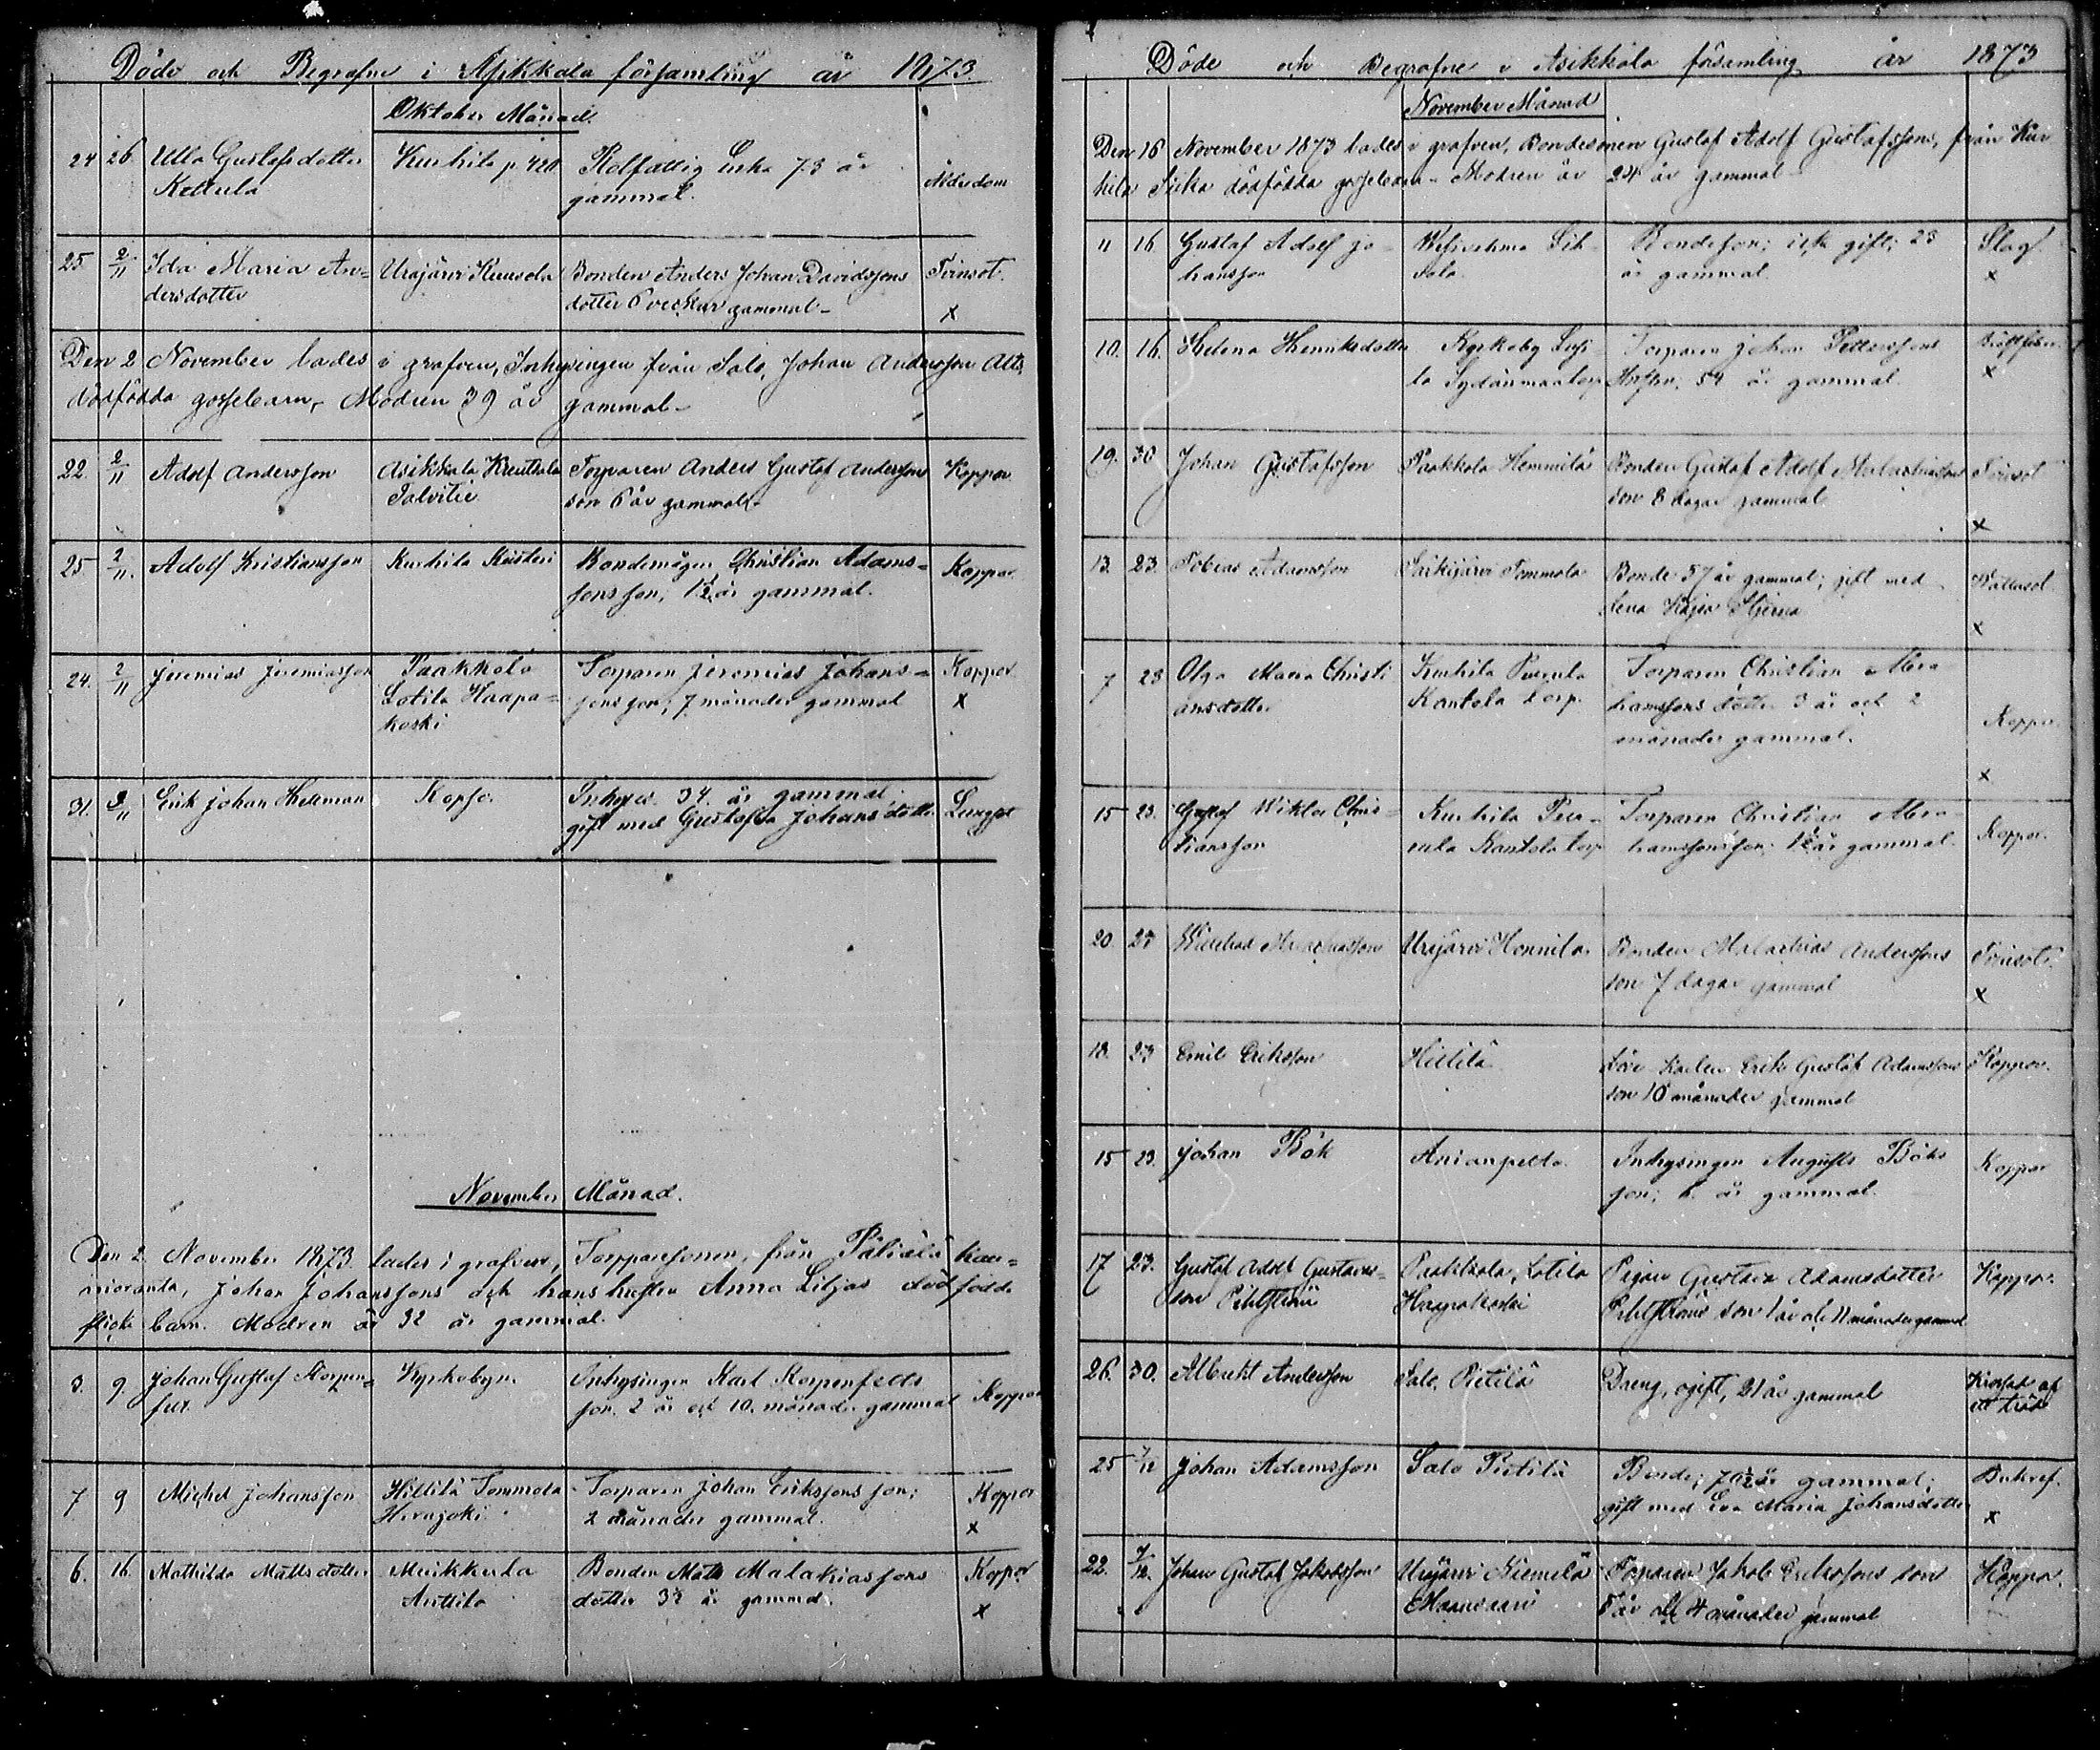 Döde och Begrafne i Asikkala församling år 1873.
Oktober Månad.
24 26 Ulla Gustafsdotter Kurhila Rotfattig Enka 73 år Ålderdom
Kettula gammal.
25 2/11 Ida Maria An= Urajärvi Kuusola Bonden Anders Johan Davidssons Tvinsot.
dersdotter dotter 6 veckor gammal- x
Den 2 November lades i grafven, Inhysingen från Salo, Johan Andersson
dödfödda gossebarn, Modren 39 år gammal-
22. 2/11 Adolf Andersson Asikkala Torparen Anders Gustaf Anderssons Koppor
Talvitie son 6 år gammal
25 2/11. Adolf Kristiansson Kurhila Bondemågen Christian Adams=
sons son, 1½ år gammal. Koppor
24. 2/11 Jeremias Jeremiasson Paakkola Torparen Jeremias Johans= Koppor
Lotila Haapa= sons son; 7 månader gammal x
koski
31. 9/11 Erik Johan Inhyses 34 år gammal
gift med Gustafva Johansdotter
November Månad.
Den 2 November 1873 lades i grafven, Torparesonen, från
Johan Johanssons och hans hustru Anna Liljas dödfödda
flickebarn. Modren är 32 år gammal.
3. 9 Johan Gustaf Korpen= Kyrkobyn. Inhysingen Karl Korpenfelts
felt son 2 år och 10 månader gammal Koppor
7 9 Michel Johansson Hillilä Tommola Torparen Johan Erikssons son; Koppor
2 månader gammal. x
6. 16. Mathilda Mattsdotter Muikkula Bonden Matts Malakiassons Koppor
Anttila dotter 3½ år gammal. x
Döde och Begrafne i Asikkala församling år 1873
November Månad
Den 16 November 1873 lades i grafven, Bondesonen Gustaf Adolf Gustafssons, från Kur
hila dödfödda gossebarn- Modren är 24 år gammal
11 16. Gustaf Adolf Jo= Vesivehma Bondeson; icke gift; 23 Slag.
hansson år gammal x
10. 16. Helena Henriksdotter Kyrkoby Torparen Johan Petterssons
Sydänmaa torp Hustru, 54 år gammal x
19. 30 Johan Gustafsson Paakkola Hemmilä Bonden Gustaf Adolf Malachiassons Tvinsot
son 8 dagar gammal x
13. 23. Tobias Adamsson Särkijärvi Tommola Bonde 57 år gammal; gift med
Lena Kajsa x
7 23 Olga Maria Christi Kurhila Torparen Christian Abra
ansdotter Kantola torp. hamssons dotter 3 år och 2
månader gammal. Koppor
x
15 23. Gustaf Wiktor Chris= Kurhila Torparen Christian Abra=
tiansson Kantola torp hamssons son; 1½ år gammal. Koppor.
20. 27 Urajärvi Bonden Malachias Anderssons Tvinsot.
son 7 dagar gammal x
18. 23 Emil Eriksson Hillilä Erik Gustaf Adamssons Koppor.
son 10 månader gammal
15 23. Johan Bök Anianpelto Inhysingen Augusts Böks Koppor
son; år gammal.
17 23. Gustaf Adolf Gustavas= Paakkola, Lotila Pigan Gustava Adamsdotter Koppor.
son Haapakoski son 1 år och 11 månader gammal
26. 30. Albrekt Andersson Salo, Pietilä Dreng, ogift, 21 år gammal Krossad af
ett träd
25 7/12 Johan Adamsson Salo Pietilä Bonde; 70½ år gammal;
gift med Eva Maria Johansdotter x
22. 7/12. Johan Gustaf Jakobsson Urajärvi Niemelä Torparen Jakob Erikssons son Koppor.
5 år och 4 månader gammal